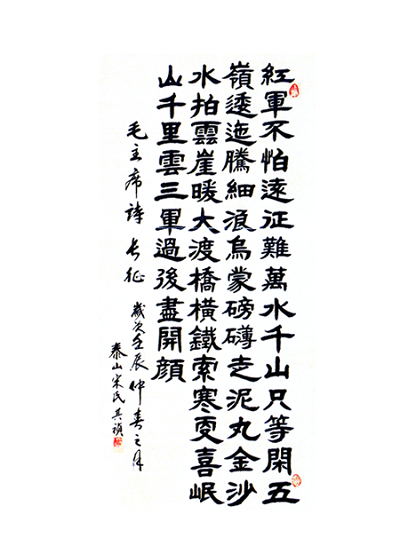 紅軍不怕遠征難萬水千山只等閑五
嶺逶迤騰細浪烏蒙磅礴走泥丸金沙
水拍雲崖暖大渡橋橫鐵索寒更喜岷
山千里雲三軍過後盡開顏
毛主席詩 長征 歲次壬辰仲春之月
泰山宋氏